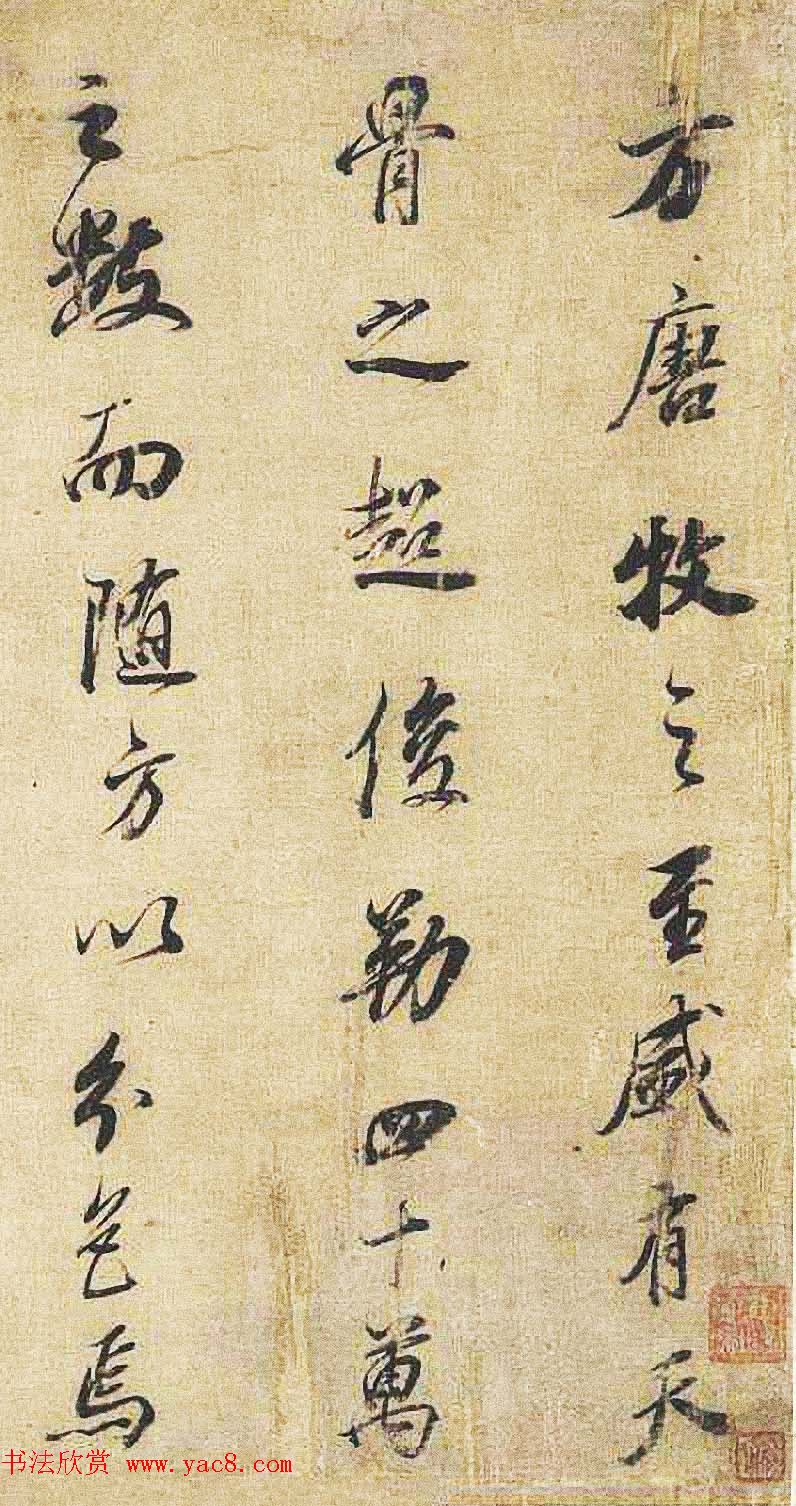 方唐牧之至盛有天
骨之超俊勒四十萬
之數而隨方以分色焉
书法欣赏 www.yac8.com